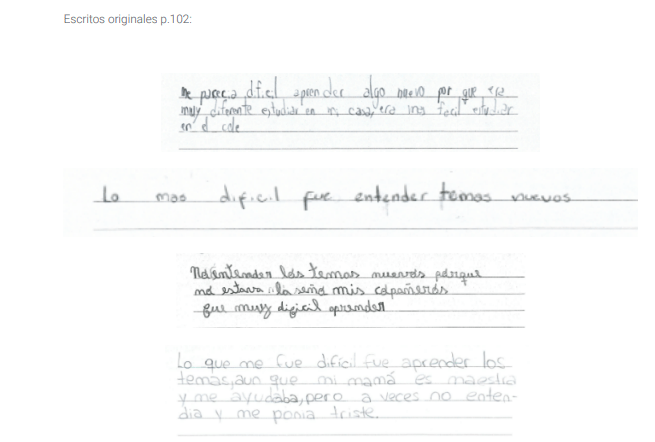 Escritos originales p.102:
Me parecia dificil aprender algo nuevo por que era
muy diferente estudiar en mi casa, era mas facil estudiar
en el cole
Lo mas dificil fue entender temas nuevos
No entender los temas nuevos porque
no estava la seño mis conpañeros
fue muy dificil aprender
Lo que me fue difícil fue aprender los
temas, aun que mi mamá es maestra
y me ayudaba, pero a veces no enten-
dia y me ponia triste.